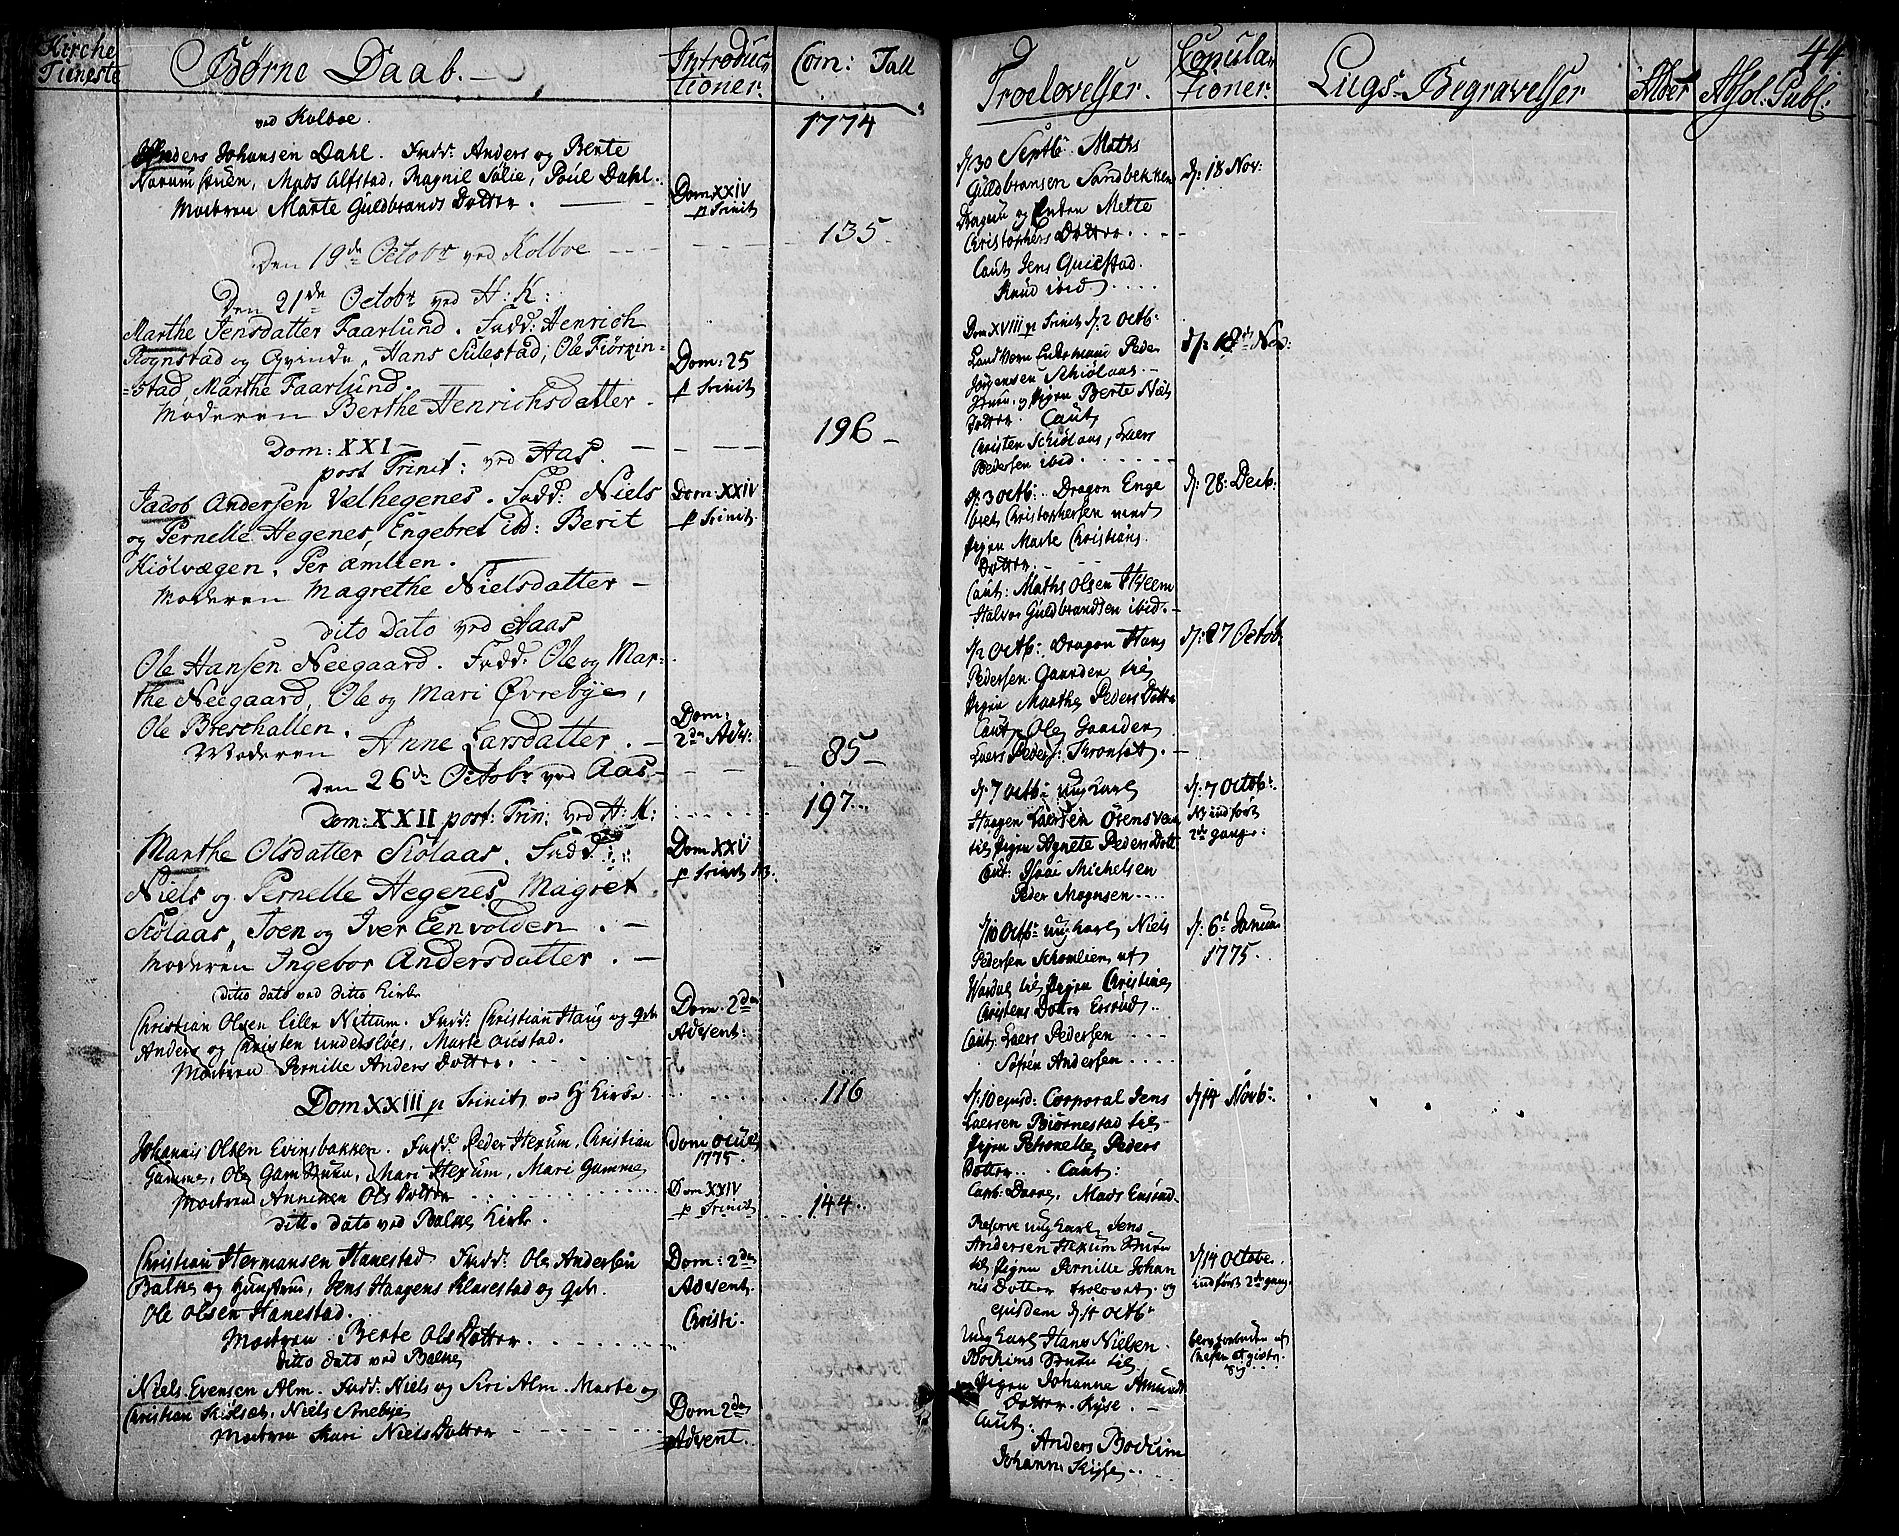 Kirche
Tieneste
Børne Daab. —
Introduc
tioner:
Com: Tall
ved Kolboe.
1774
Anders Johansen Dahl. Fadd: Anders og Berte
Narumstuen, Mads Alfstad, Ragnil Sølie, Poul Dahl.
Moderen Marte Guldbrands Dotter. —
Dom XXIV
p Trinit
135
Den 19de Octobr ved Kolboe
Den 21de Octobr ved H: K:
Marthe Jensdatter Faarlund. Fadd: Henrich
Rognstad og Qvinde, Hans Sulestad, Ole Fiørkin=
=stad, Marthe Faarlund.
Moderen Berthe Henrichsdatter.
Dom: 25
p Trinit
196 —
Dom: XXI
post Trinit: ved Aas.
Jacob Andersen Velhegenes. Fadd: Niels
og Pernelle Hegenes, Engebret ibd: Berit
Kiølvægen, Per æmlien.
Moderen Magrethe Nielsdatter —
Dom: XXIV
p Trinit.
dito Dato ved Aaas
Ole Hansen Neegaard. Fadd: Ole og Mar-
the Neegaard, Ole og Mari Øvrebye,
Ole Breschallen.
Moderen Anne Larsdatter. —
Dom:
2den Adv:
85 —
Den 26de Octobr ved Aas —
Dom: XXII post: Trin: ved H: K:
197
Marthe Olsdatter Siølaas. Fadd:
Niels og Pernelle Hegenes, Magret
Siølaas, Joen og Iver Eenvolden. —
Moderen Ingebor Andersdatter. —
Dom XXV
p Trinit
ditto dato ved ditto Kirke
Christian Olsen Lille Nitum. Fadd: Christian Haug og qv:
Anders og Christen undersløes, Marte
Moderen Pernille Anders Dotter.
Dom. 2den
Advent:
Dom XXIII p Trinit ved H Kirke.
116
Johannis Olsen Evinsbakken. Fadd: Peder Hexum, Christian
Gamme, Ole Gamstuen, Mari Hexum, Mari Gamme
Moderen Anniken Ols Dotter
Dom Oculi
1775
Dom XXIV
p Trinit
144
ditto dato ved Balke Kirke.
Christian Hermansen Hanestad Fadd: Ole Andersen
Balke og Hustrue, Jens Haagens Klarestad og qv:
Ole Olsen Hanestad.
Moderen Berte Ols Dotter.
Dom: 2den
Advent.
Christi.
ditto dato ved Balke
Niels Evensen Alm. Fadd: Niels og Siri Alm. Marte og
Christian Skiølset, Niels Anebye
Moderen Kari Niels Dotter
Dom 2den
Advent.
44
Troelovelser.
Copula
tioner:
Liigs-Begravelser
Alder
Absol: Publ:
d/30 Septb: Maths
Guldbransen Sandbekken
Dragun og Enken Mette
Christophers Dotter.
Caut Jens Quicstad
Knud ibid
d/: 18 Nov:
Dom XVIII p Trinit d/2 Octb:
Landværn Peder
Jørgensen Schiølaas
og Pigen Berte Niels
Dotter Caut
Christen Schiølaas, Laers
Pedersen ibid
d/: 18de Nov:
d/: 3 Octb: Dragon Enge
bret Christophersen
Pigen Marte Christians
Dotter.
Caut: Maths Olsen Hveem
Halvor Guldbrandsen ibid.
d/: 28: Decb:
d/2 Octb: Dragon Hans
Pedersen Gaarden til
Pigen Marthe Peders Dotter
Caut: Ole Gaarden
Laers Peders:
d/: 27 Octob:
d/: 7 Octb: ung Karl
Haagen Laersen
til Pigen Agnete Peders Dott
Caut: Isaac Michelsen
Peder Mognsen
d/: 7 Octob:
indført
2de gange:
d/10 Octb: ung Karl Niels
Pedersen Schomlien af
Wardal til Pigen Christine
Christens Dotter Ersrud
Caut: Laers Pedersen
Søfren Andersen
d/: 6te Janua
1775.
d/: 10 ejusd: Corporal Jens
Laersen Biørnestad til
Pigen Petronelle Peders
Dotter. Caut:
Carb: Dorre, Mads Ensrud
d/14 Novb:
Reserve ung Karl Jens
Andersen Hexum
til Pigen Pernille Johan
nis Dotter trolovet og
ejusdem d/14 Octb:
d/14 Octobr.
indført 2de gang
Ung Karl Hans Nielsen
til
Pigen Johanne Amunds
Dotter Kyse.
Caut:
Anders Bodum
Johannes Kyse